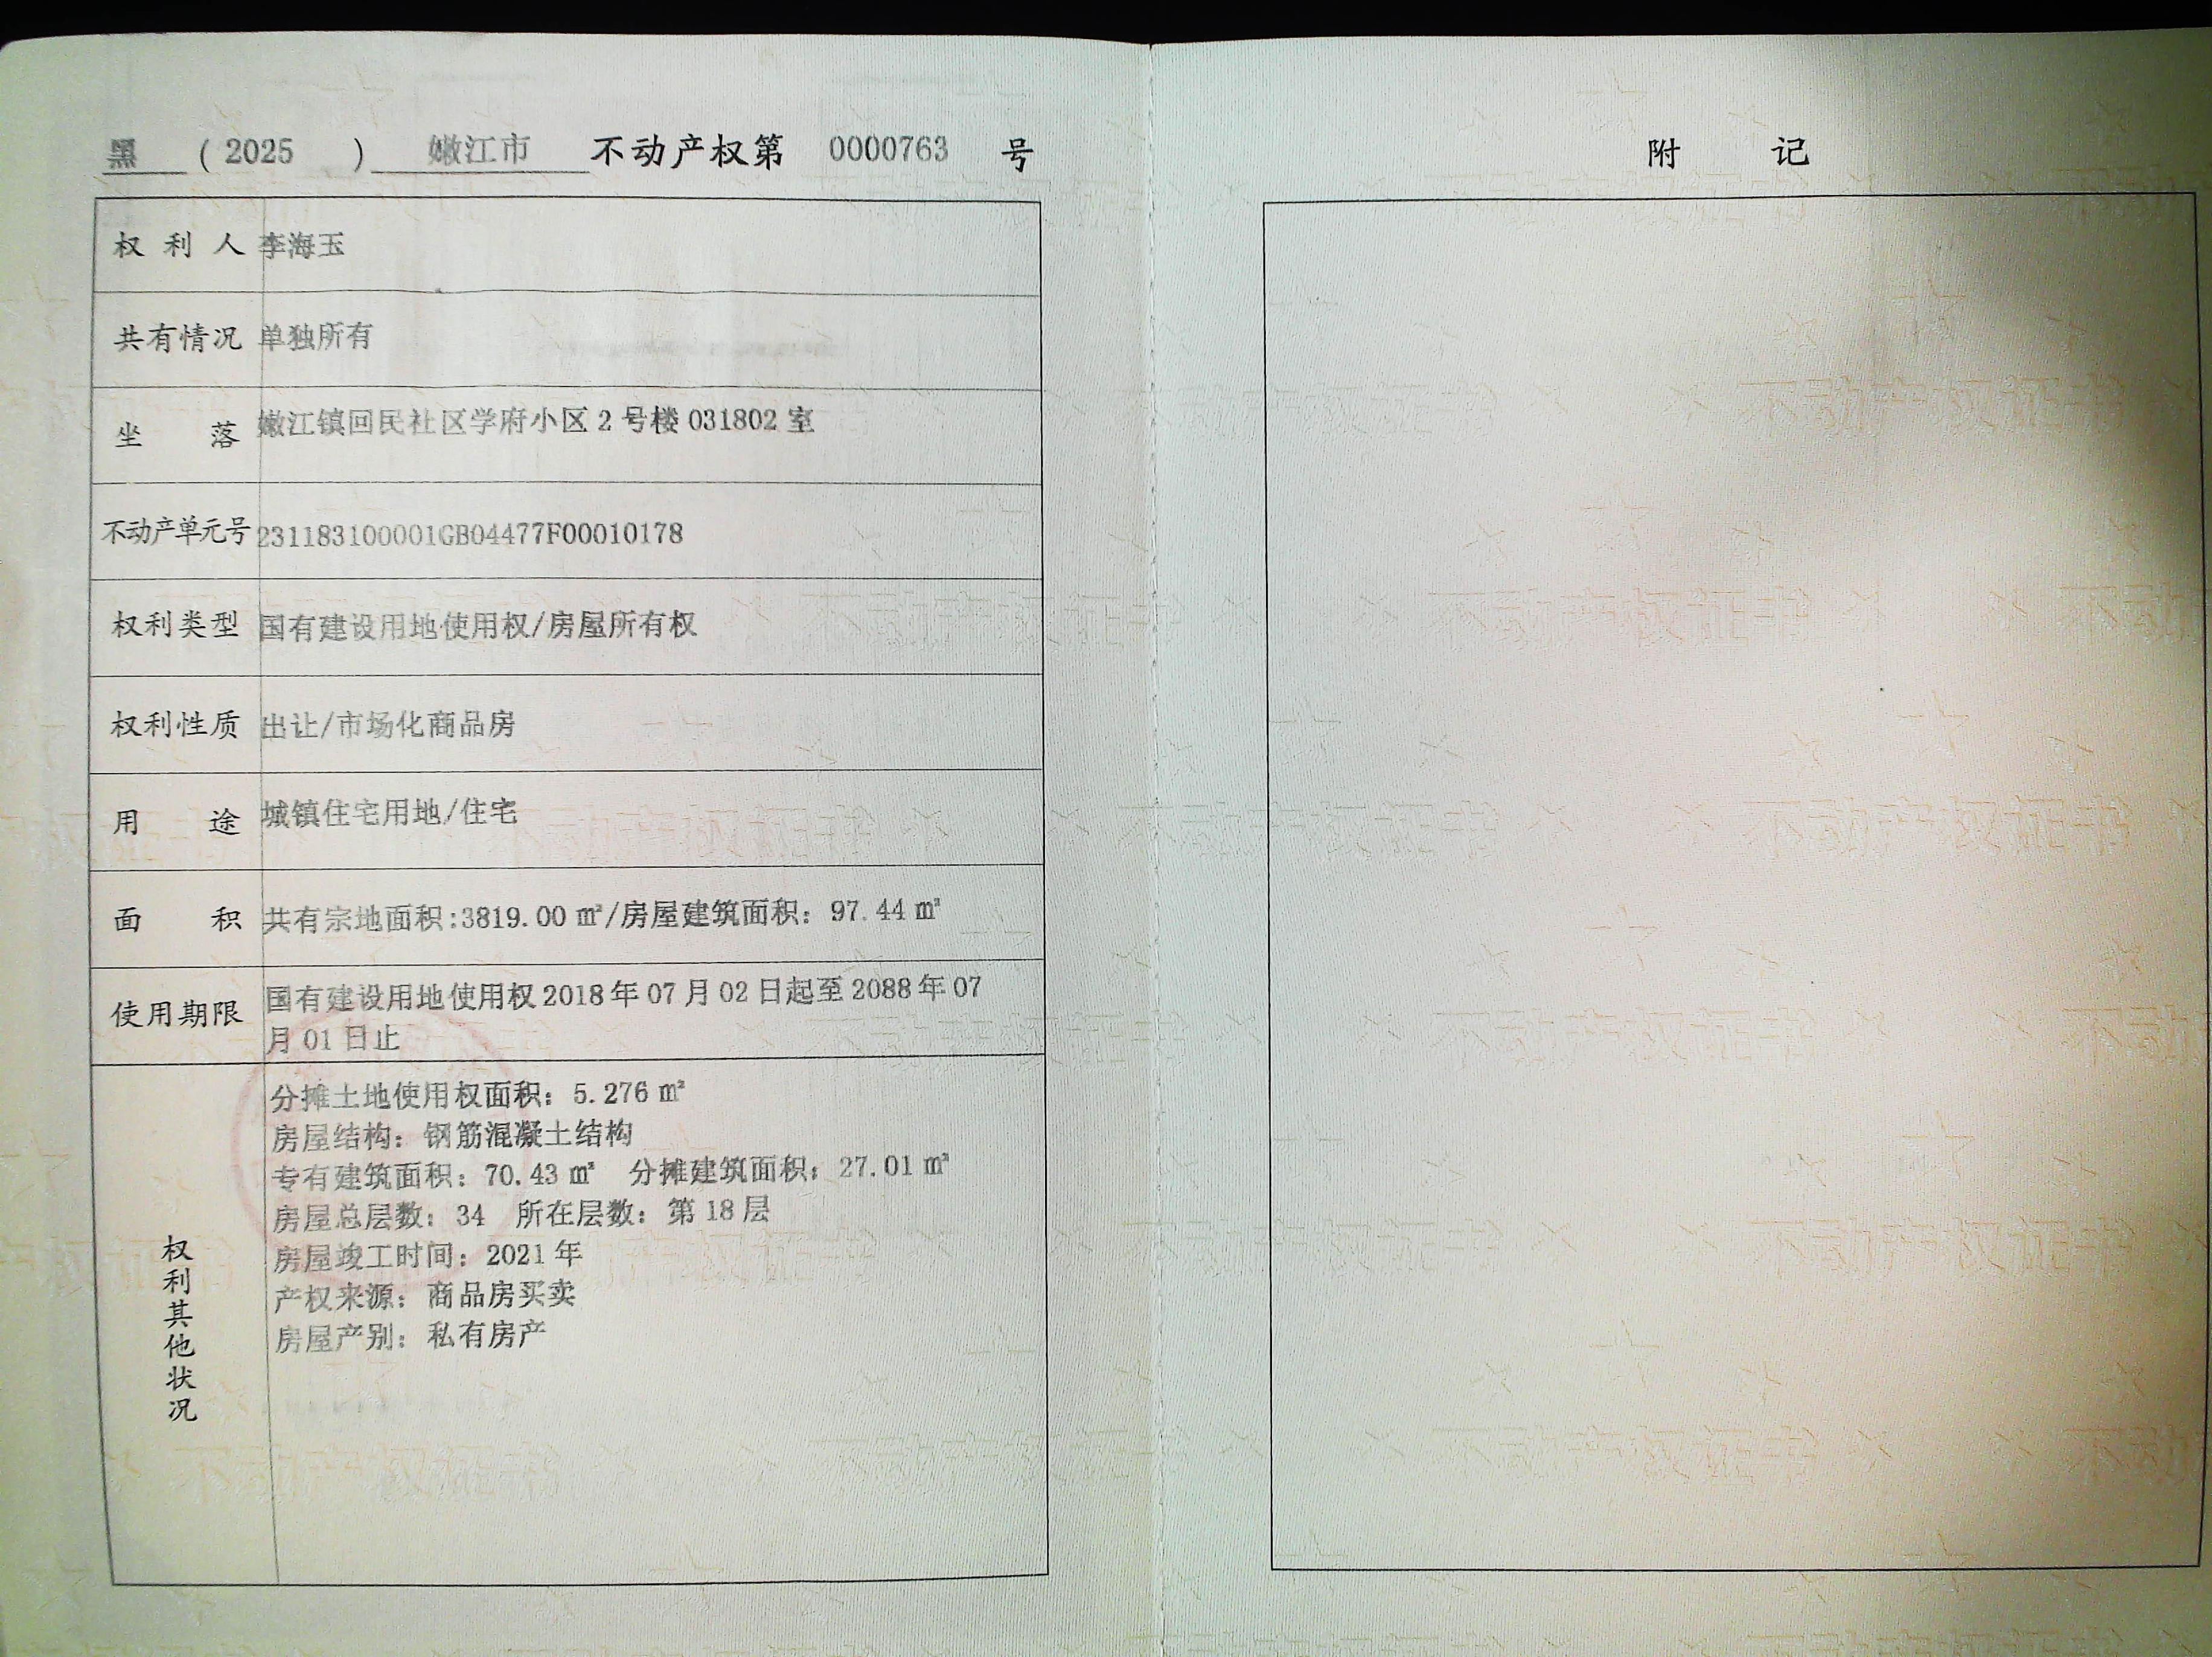 黑 (2025 ) 嫩江市 不动产权第 0000763 号
权利人 李海玉
共有情况 单独所有
坐落 嫩江镇回民社区学府小区2号楼031802室
不动产单元号 231183100001GB04477F00010178
权利类型 国有建设用地使用权/房屋所有权
权利性质 出让/市场化商品房
用途 城镇住宅用地/住宅
面积 共有宗地面积:3819.00㎡/房屋建筑面积：97.44㎡
使用期限 国有建设用地使用权2018年07月02日起至2088年07
月01日止
权利其他状况
分摊土地使用权面积：5.276㎡
房屋结构：钢筋混凝土结构
专有建筑面积：70.43㎡ 分摊建筑面积：27.01㎡
房屋总层数：34 所在层数：第18层
房屋竣工时间：2021年
产权来源：商品房买卖
房屋产别：私有房产
附记